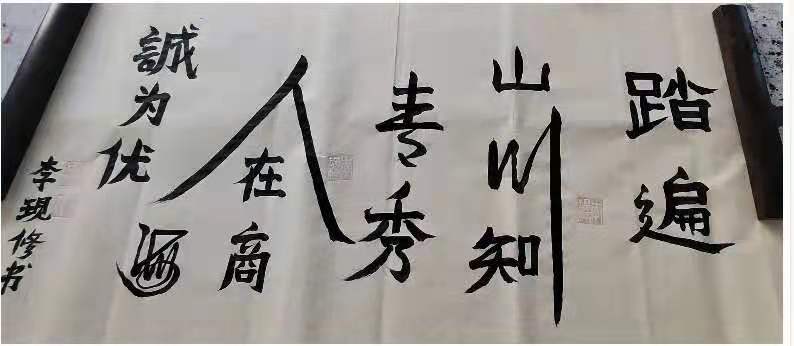 踏遍
山川知
青秀
人在商
海
誠为优
李现修书